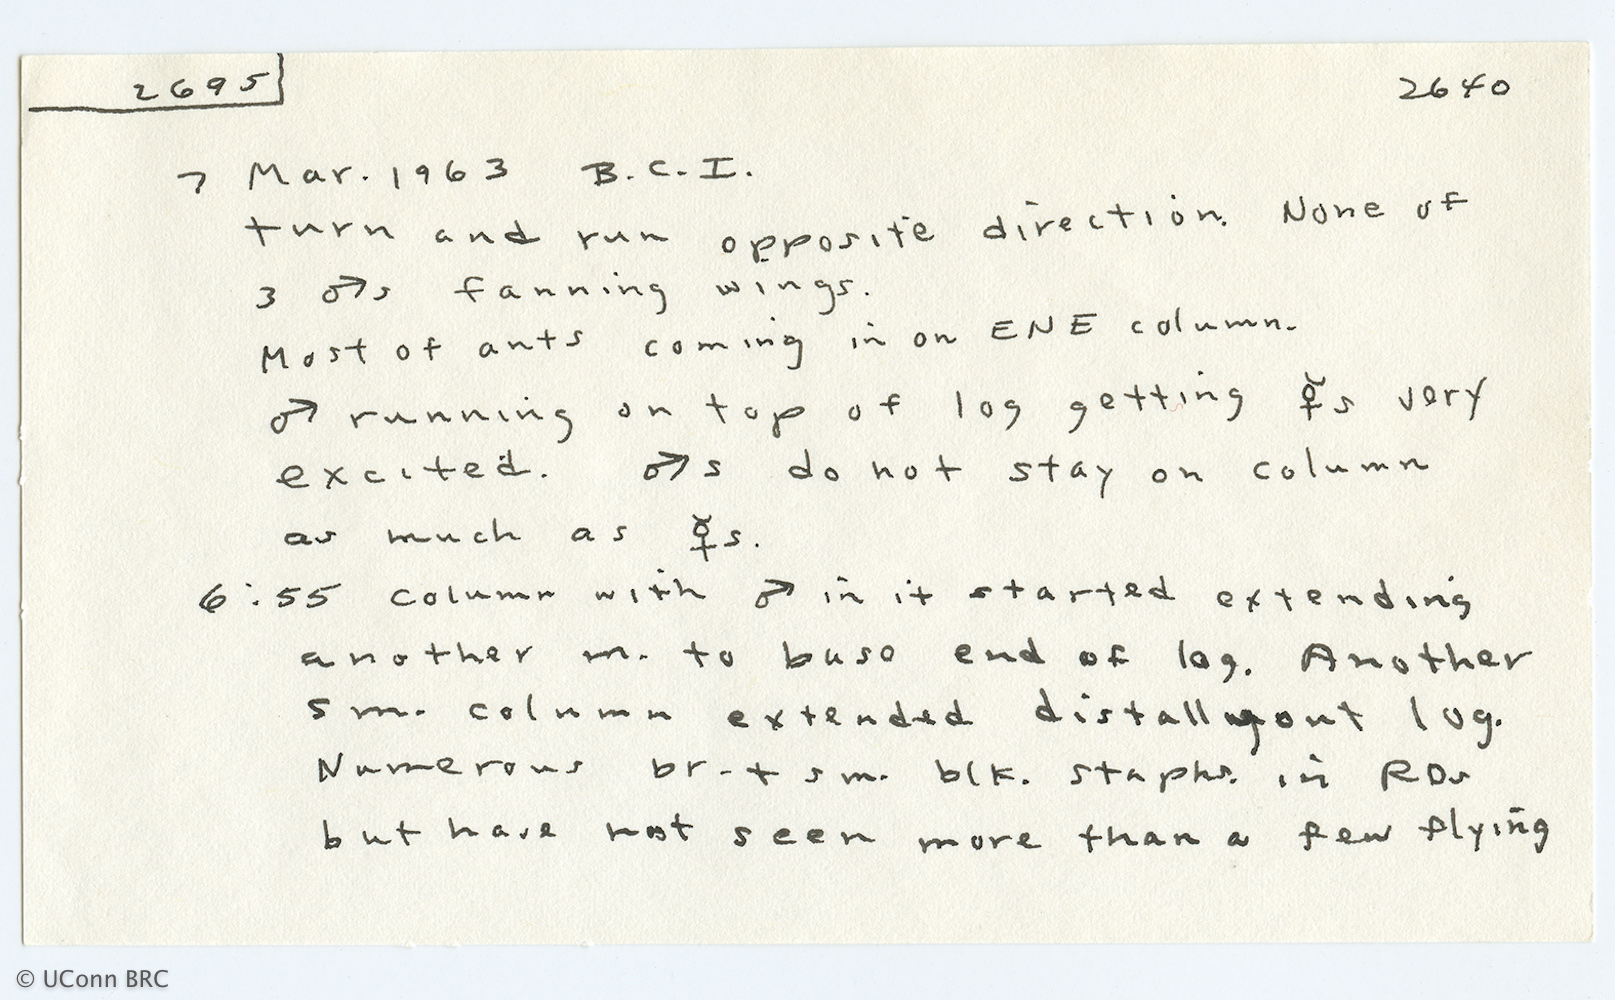 2695 2640
7 Mar. 1963 B.C.I.
turn and run opposite direction. None of
3 ♂s fanning wings.
Most of ants coming in on ENE column.
♂ running on top of log getting ☿s very
excited. ♂s do not stay on column
as much as ☿s.
6:55 column with ♂ in it started extending
another m. to base end of log. Another
5 m. column extended distally out log.
Numerous br. + sm. blk. staphs. in RDs
but have not seen more than a few flying
© UConn BRC